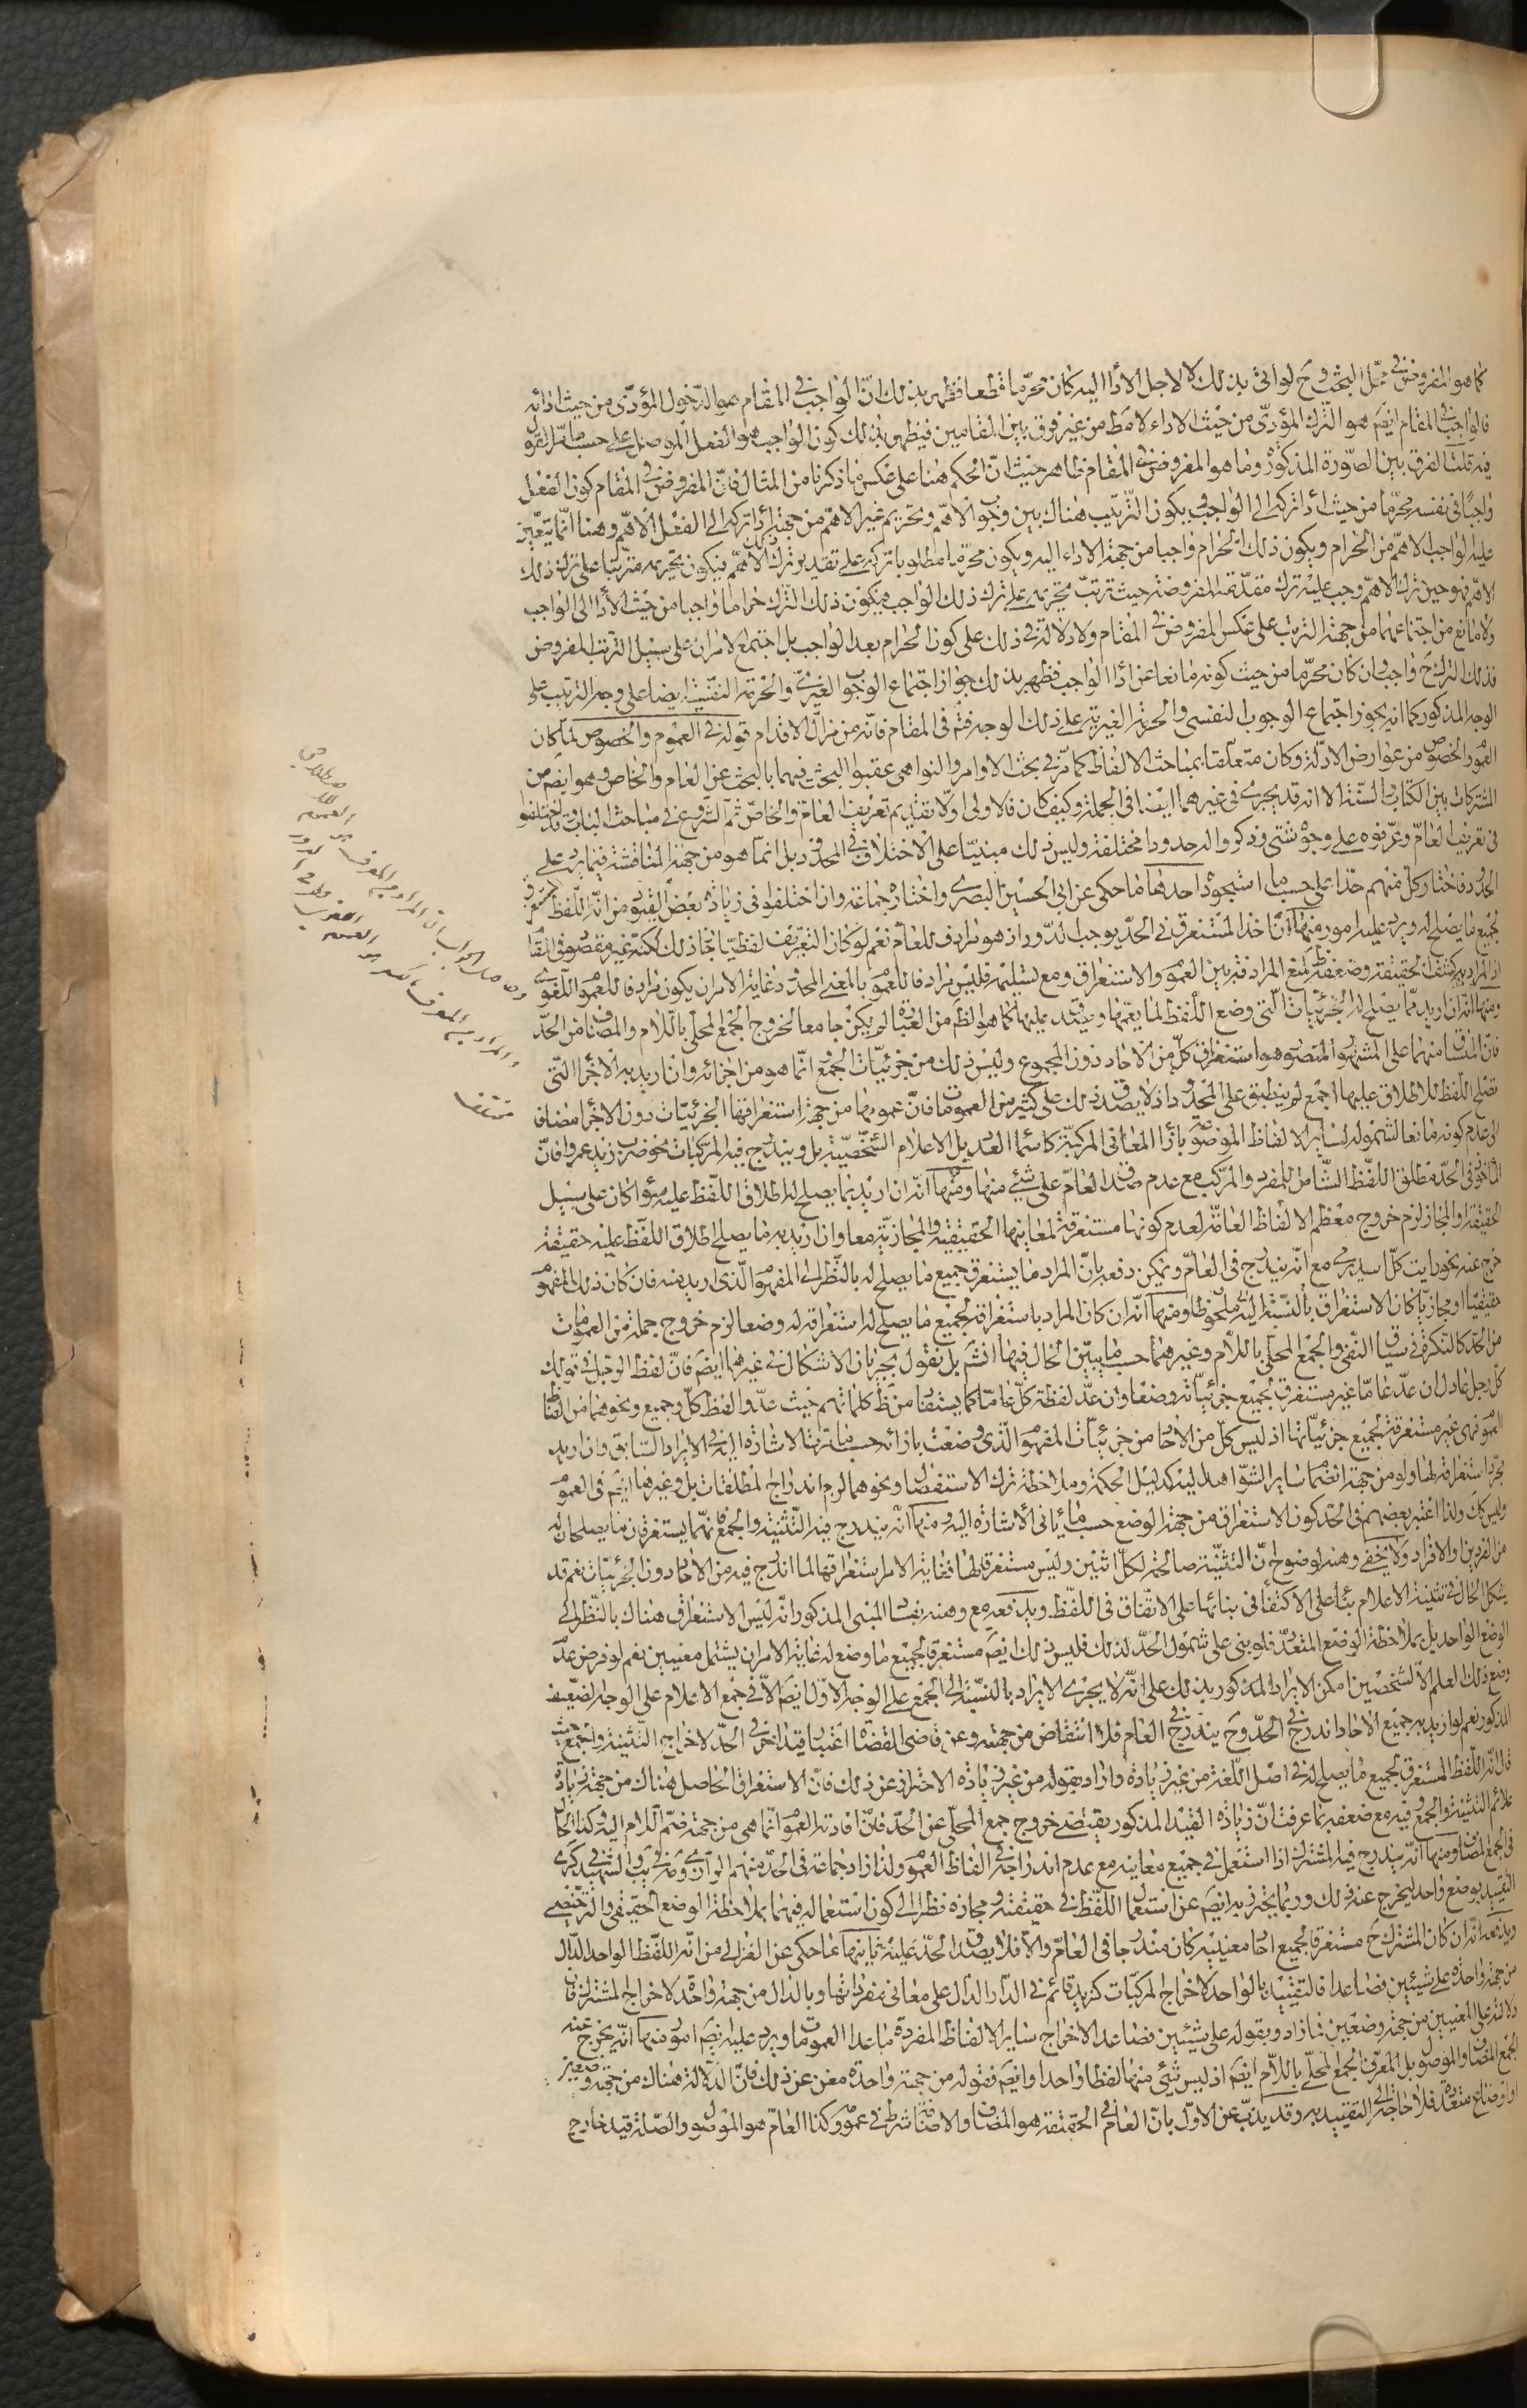 كما هو المفروض في محلّ البحث وح لو اتى بذلك لا لاجل الأداء اليه كان محرّما قطعا فظهر بذلك انّ الواجب في المقام هو الدّخول المؤدّى من حيث ادائه
فالواجب في المقام ايضَ هو التّرك المؤدّى من حيث الاداء لا مط من غير فرق بين المقامين فيظهر بذلك كون الواجب هو الفعل الموصل على حسب ما مرّ القول
فيه قلت الفرق بين الصّورة المذكورة وما هو المفروض في المقام ظاهر حيث انّ الحكم هنا على عكس ما ذكرنا من المثال فانّ المفروض في المقام كون الفعل
واجبًا في نفسه محرّما من حيث اداء تركه الى الواجب ويكون التّرتيب هناك بين وجوب الاهمّ وتحريم غير الاهم من جهة اداء تركه الى الفعل الاهمّ وهنا انّما يتعيّن
عليه الواجب الاهمّ من الحرام ويكون ذلك الحرام واجبا من جهة الاداء اليه ويكون محرّما مطلوبا تركه على تقدير ترك الاهمّ فيكون تحريمه مترتّبا على ترك ذلك
الاهمّ فهو حين ترك الاهمّ وجب عليه ترك مقدّمته المفروضة حيث ترتبّ تحريمه على ترك ذلك الواجب فيكون ذلك التّرك حراما واجبا من حيث الأداء الى الواجب
ولا مانع من اجتماعهما من جهة الترتب على عكس المفروض في المقام ولا دلالة في ذلك على كون الحرام بعد الواجب بل اجتمع الامران على سبيل الترتب المفروض
فذلك الترك ح واجب وان كان محرّما من حيث كونه مانعا عن اداء الواجب فظهر بذلك جواز اجتماع الوجوب الغيرىّ والحرمة النفسيّة ايضا على وجه الترتيب على
الوجه المذكور كما انه يجوز اجتماع الوجوب النفسى والحرمة الغيريّة على ذلك الوجه فتمّ في المقام فانّه من مزالّ الاقدام قوله في العموم والخصوص لمّا كان
العموم والخصوص من عوارض الادلّة وكان متعلّقا بمباحث الالفاظ كما مرّ في بحث الاوامر والنواهى عقبوا البحث فيهما بالبحث عن العام والخاص وهو ايضَ من
المشتركات بين الكتاب والسّنّة الا انه قد يجرى في غيرهما ايضا في الجملة وكيف كان فالاولى اوّلا تقديم تعريف العامّ والخاصّ ثمّ الشّروع في مباحث الباب وقد اختلفوا
في تعريف العامّ وعرّفوه على وجوه شتى وذكروا له حدودا مختلفة وليس ذلك مبنيّا على الاختلاف في المحدود بل انّما هو من جهة المناقشة فيما يرد على
الحدود فاختار كلّ منهم حدّا على حسب ما استجوده احدها ما حكى عن ابى الحسين البصرى واختاره جماعة وان اختلفوا في زيادة بعض القيود من انّه اللّفظ المستغرق
لجميع ما يصلح له ويرد عليه امور منها انّ اخذ المستغرق في الحدّ يوجب الدّور اذ هو مرادف للعامّ نعم لو كان التّعريف لفظيّا جاز ذلك لكنّه غير مقصود في المقام
اذ المراد به كشف الحقيقة وضعفه ظ لمنع المرادفة بين العموم والاستغراق ومع تسليمه فليس مرادفا للعموم بالمعنى المحدود غاية الامر ان يكون مرادفا للعموم اللّغوى
ومنها انّه ان اريد ممّا يصلح له الجزئيّات الّتى وضع اللّفظ لما يعمّها ويصدق عليها كما هو الظّ من العبارة لم يكن جامعا لخروج الجمع المحلّى باللّام والمضاف من الحدّ
فانّ المنساق منهما على المشهور المنصور هو استغراق كلّ من الآحاد دون المجموع وليس ذلك من جزئيّات الجمع انّما هو من اجزائه وان اريد به الاجزاء الّتى
تصلح اللّفظ للاطلاق عليها اجمع لم ينطبق على المحدود اذ لا يصدق ذلك على كثير من العمومات فانّ عمومها من جهة استغراقها الجزئيّات دون الاجزاء مضافا
الى عدم كونه مانعا لشموله لساير الالفاظ الموضوعة بازاء المعانى المركّبة كاسماء العدد بل الاعلام الشّخصيّة بل ويندرج فيه المركّبات نحو ضرب زيد عمروا فانّ
المأخوذ في الحدّ مطلق اللّفظ الشّامل للمفرد والمركّب مع عدم صدق العامّ على شيئ منها ومنها انّه ان اريد بما يصلح له اطلاق اللّفظ عليه سواء كان على سبيل
الحقيقة والمجاز لزم خروج معظم الالفاظ العامّة لعدم كونها مستغرقة لمعانيها الحقيقيّة والمجازيّة معا وان اريد به ما يصلح اطلاق اللّفظ عليه حقيقة
خرج عنه نحو رايت كلّ اسد يرمى مع انّه يندرج في العامّ ويمكن دفعه بانّ المراد ما يستغرق جميع ما يصلح له بالنّظر الى المفهوم الّذى اريد منه فان كان ذلك المفهوم
حقيقيّا او مجازيّا كان الاستغراق بالنّسبة اليه ملحوظا ومنها انّه ان كان المراد باستغراقه لجميع ما يصلح له استغراقه له وضعا لزم خروج جملة من العمومات
من الحدّ كالنكرة في سياق النّفى والجمع المحلّى باللّام وغيرهما حسب ما يبيّن الحال فيها انش بل نقول بجريان الاشكال في غيرهما ايضَ فانّ لفظ الرّجل في قولك
كلّ رجل عادل ان عدّ عامّا غير مستغرق لجميع جزئيّاته وضعا وان عدّ لفظة كلّ عامّا كما يستفاد من ظ كلماتهم حيث عدّوا لفظ كلّ وجميع ونحوهما من الفاظ
العموم فهى غير مستغرقة لجميع جزئيّاتها اذ ليس كلّ من الآحاد من جزئيّات المفهوم الّذى وضعت بازائه حسب ما مرّت الاشارة اليه في الايراد السّابق وان اريد
مجرّد استغراقه لها ولو من جهة انضمام ساير الشّواهد اليه كدليل الحكمة وملاحظة ترك الاستفصال ونحوهما لزم اندراج المطلقات بل وغيرها ايضَ في العموم
وليس كك ولذا اعتبر بعضهم في الحدّ كون الاستغراق من جهة الوضع حسب ما يأتى الاشارة اليه ومنها انّه يندرج فيه التّثنية والجمع فانّهما يستغرقان ما يصلحان له
من الفردين والافراد ولا يخفى وهنه لوضوح انّ التّثنية صالحة لكلّ اثنين وليس مستغرقة لها فغاية الامر استغراقها لما اندرج فيه من الآحاد دون الجزئيّات نعم قد
يشكل الحال في تثنية الاعلام بناء على الاكتفاء في بنائها على الاتّفاق في اللّفظ ويدفعه مع وهنه بفساد المبنى المذكور انّه ليس الاستغراق هناك بالنّظر الى
الوضع الواحد بل بملاحظة الوضع المتعدّد فلو بنى على شمول الحدّ لذلك فليس ذلك ايضَ مستغرقا لجميع ما وضع له غاية الامر ان يشتمل معنيين نعم لو فرض عدم
وضع ذلك العلم الّا لشخصين امكن الايراد المذكور بذلك على انّه لا يجرى الايراد بالنّسبة الى الجمع على الوجه الاوّل ايضَ الّا في جمع الاعلام على الوجه الضّعيف
المذكور نعم لو اريد به جميع الآحاد اندرج في الحدّ وح يندرج في العام فلا انتقاض من جهته وعن قاضى القضاة اعتبار قيد اخر في الحدّ لاخراج التّثنية والجمع حيث
قال انّه اللّفظ المستغرق لجميع ما يصلح له في اصل اللّغة من غير زيادة واراد بقوله من غير زيادة الاحتراز عن ذلك فانّ الاستغراق الحاصل هناك من جهة زيادة
علائم التّثنية والجمع وفيه مع ضعفه بما عرفت انّ زيادة القيد المذكور يقتضى خروج جمع المحلّى عن الحدّ فانّ افادته العموم انّما هى من جهة ضمّ اللّام اليه وكذا الحال
في الجمع المضاف ومنها انّه يندرج فيه المشترك اذا استعمل في جميع معانيه مع عدم اندراجه في الفاظ العموم ولذا زاد جماعة في الحدّ منهم الرّازى
التّقييد بوضع واحد ليخرج عنه ذلك وربّما يحترز به ايضَ عن استعمال اللّفظ في حقيقته ومجازه نظرا الى كون استعماله فيهما بملاحظة الوضع الحقيقى والتّرخيصى
ويدفعه انّه ان كان المشترك ح مستغرقا لجميع احاد معنييه كان مندرجا في العامّ والّا فلا يصدق الحدّ عليه ثانيها ما حكى عن الغزالى من انّه اللّفظ الواحد الدّالّ
من جهة واحدة على شيئين فصاعدا فالتقييد بالواحد لاخراج المركّبات كزيد قائم في الدّار الدّالّ على معانى مفرداتها وبالدّال من جهة واحدة لاخراج المشترك فان
دلالته على المعنيين من جهة وضعين فما زاد وبقوله على شيئين فصاعدا لاخراج ساير الالفاظ المفردة ما عدا العمومات ويرد عليه ايضَ امور منها انّه يخرج عنه
الجمع المضاف والموصول بل المعرّف الجمع المحلّى باللّام ايضَ اذ ليس شيئى منها لفظا واحدا وايضَ فقوله من جهة واحدة مغن عن ذلك فانّ الدّلالة هناك من جهة وضعين
او اوضاع متعدّدة فلا حاجة الى التقييد به وقد يذبّ عن الاوّل بانّ العام في الحقيقة هو المضاف والاضافة شرط في عمومه وكذا العامّ هو الموصول والصّلة قيد خارج